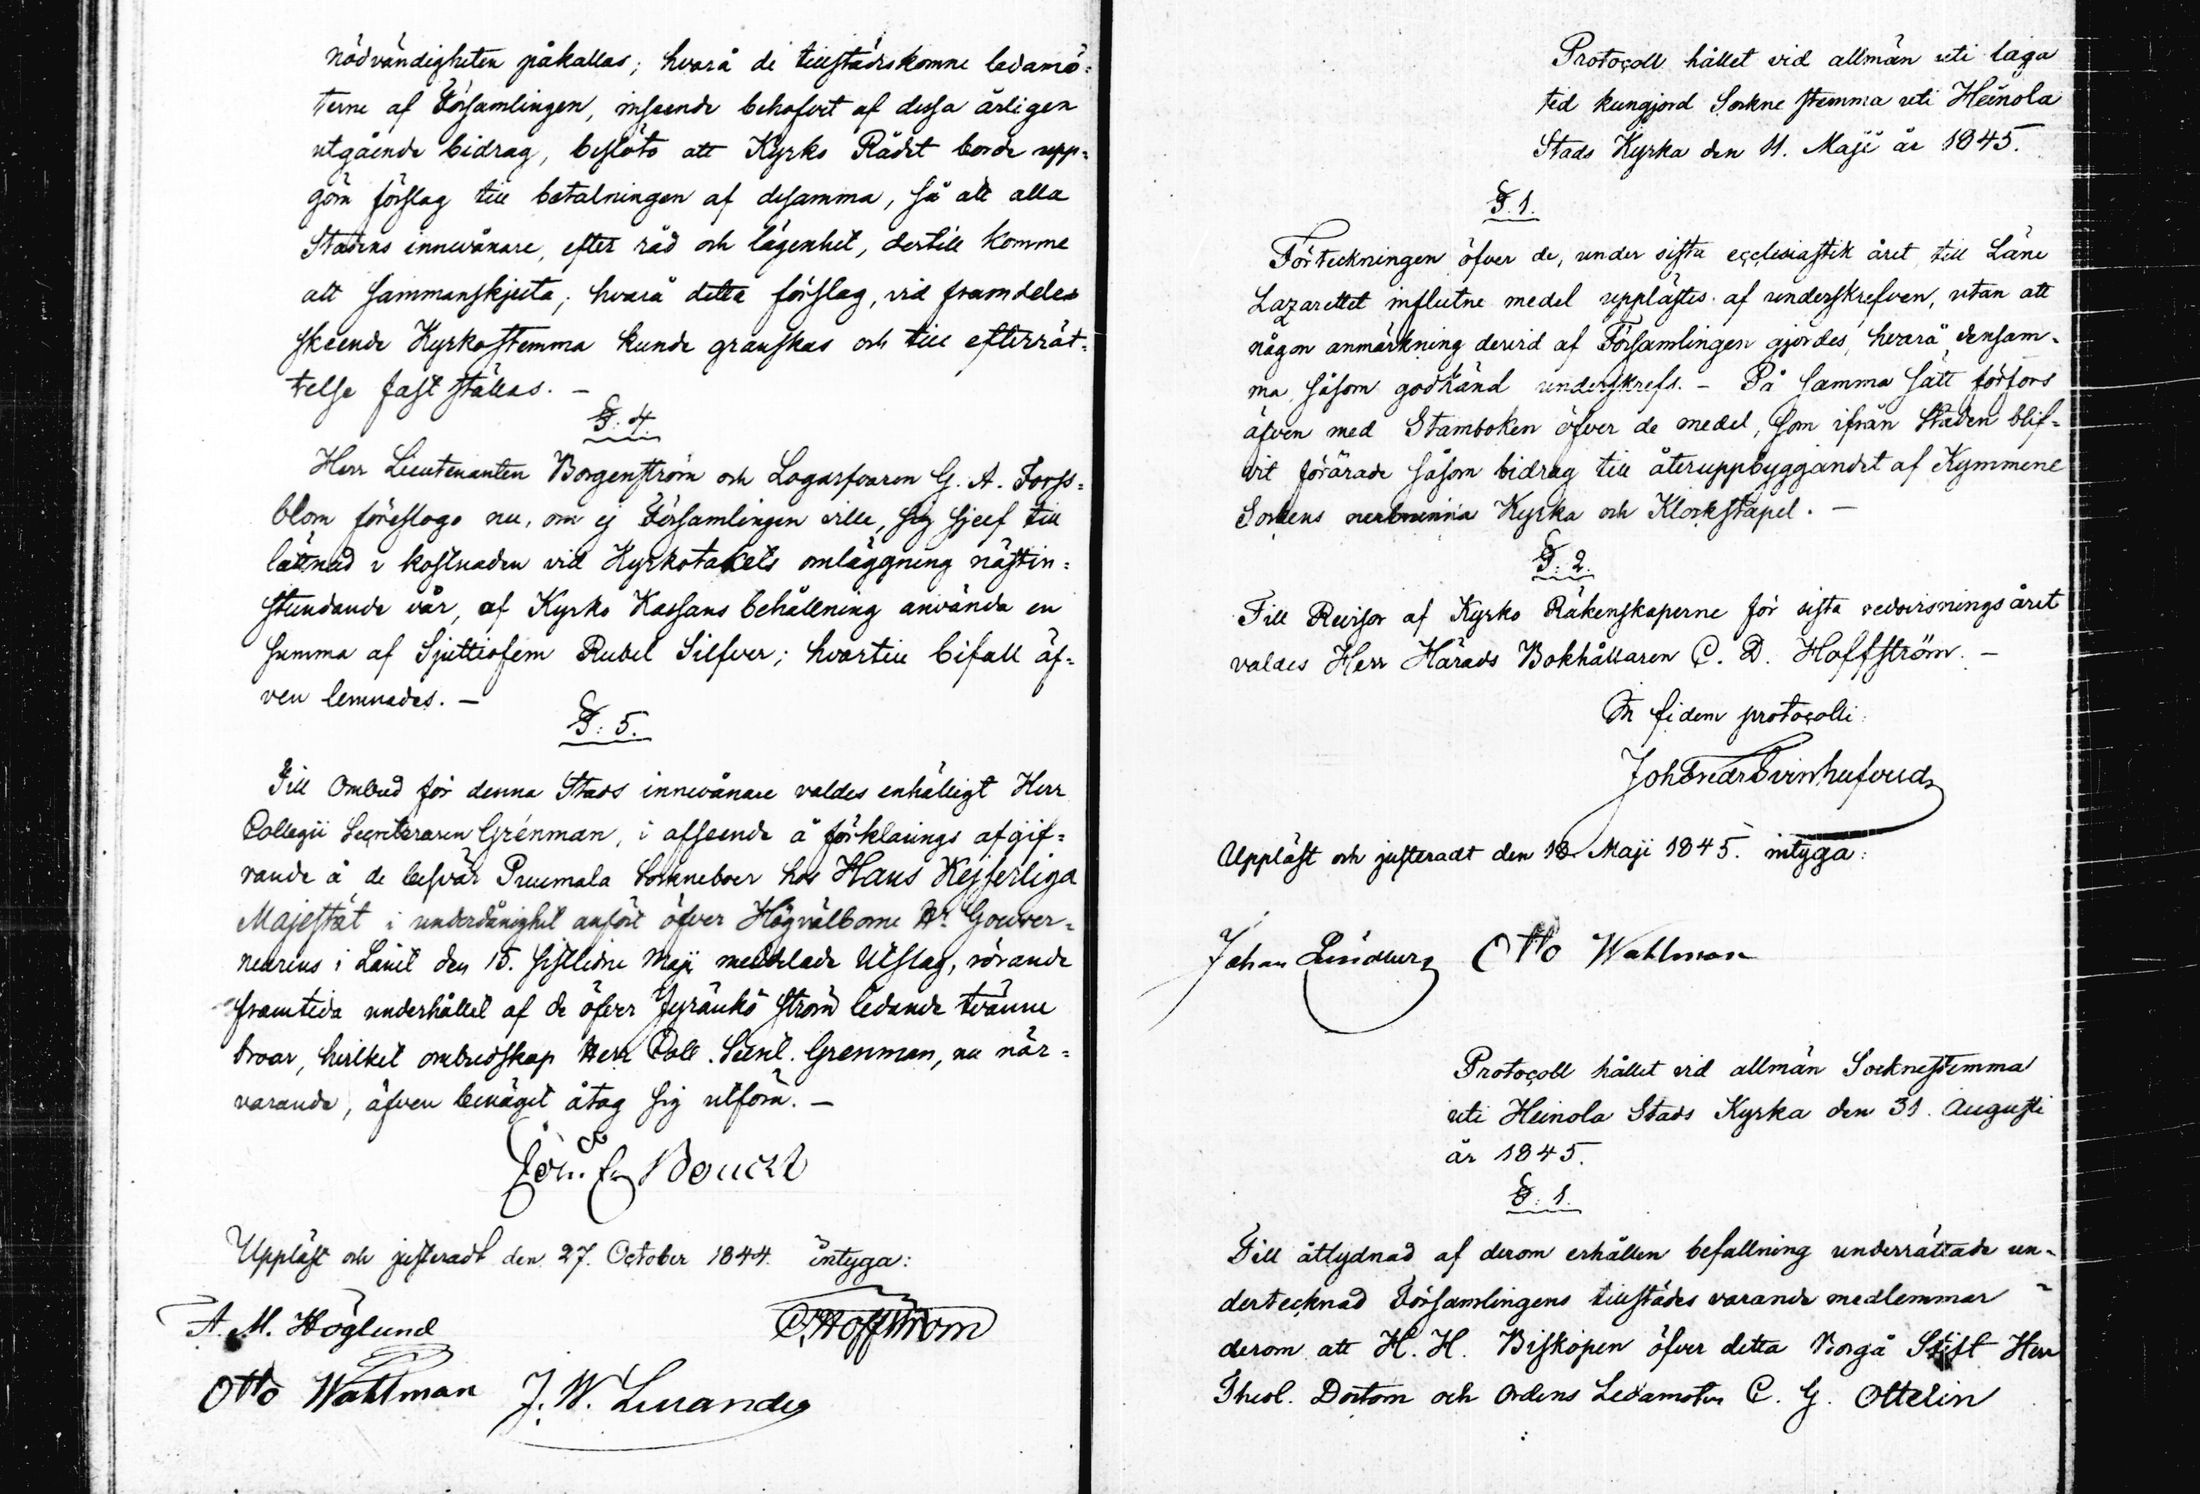 nödvändigheten påkallas; hvarå de tillstädeskomne ledamö-
terne af Församlingen, inseende behofvet af dessa årligen
utgående bidrag, beslöto att Kyrko Rådet borde upp-
göra förslag till betalningen af desamma, så att alla
Stadens innevånare, efter råd och lägenhet, dertill komme
att sammanskjuta; hvarå detta förslag, vid framdeles
skeende Kyrkostemma kunde granskas och till efterrät-
telse fastställas. —
§. 4.
Herr Lieutenanten Borgenström och Logarfvaren G. A. Forss-
blom föreslogo nu, om ej Församlingen ville, sig sjelf till
lättnad i kostnaden vid Kyrkotakets omläggning nästin-
stundande vår, af Kyrko Kassans behållning använda en
summa af Sjuttiofem Rubel Silfver; hvartill bifall äf-
ven lemnades. —
§. 5.
Till Ombud för denna Stads innevånare valdes enhälligt Herr
Collegii Secreteraren Grénman, i afseende å förklarings afgif-
vande å de besvär Puumala Sockneboer hos Hans Kejserliga
Majestät i underdånighet anfört öfver Högvälborne Hr. Gouver-
neurens i Länet den 15. sistlidne Maji meddelade Utslag, rörande
framtida underhållet af de öfver Jyränkö ström ledande tvänne
broar, hvilket ombudskap Herr Coll. Secret. Grenman, nu när-
varande, äfven benäget åtog sig utföra. —
Bouckt
Uppläst och justeradt den 27. October 1844. intyga:
A. M. Höglund C. Hoffström
Otto Wahlman J. W. Lucander
Protocoll hållet vid allmän uti laga
tid kungjord Sockne stemma uti Heinola
Stads Kyrka den 11. Maji år 1845.
§. 1.
Förteckningen öfver de, under sista ecclesiastik året till Läne
Lazarettet influtne medel upplästes af underskrefven, utan att
någon anmärkning dervid af Församlingen gjordes, hvarå densam-
ma såsom godkänd underskrefs. — På samma sätt förfors
äfven med Stamboken öfver de medel, som ifrån Staden blif-
vit förärade såsom bidrag till återuppbyggandet af Kymmene
Sockens nerbrunna Kyrka och Klockstapel. —
§. 2.
Till Revisor af Kyrko Räkenskaperne för sista redovisningsåret
valdes Herr Härads Bokhållaren C. D. Hoffström. —
In fidem protocolli:
Joh Fredr Svinhufvud
Uppläst och justeradt den 18. Maji 1845. intyga:
Johan Lindberg Otto Wahlman
Protocoll hållet vid allmän Socknestemma
uti Heinola Stads Kyrka den 31. Augusti
år 1845.
§. 1.
Till åtlydnad af derom erhållen befallning underrättade un-
dertecknad Församlingens tillstädes varande medlemmar
derom att H. H. Biskopen öfver detta Borgå Stift Herr
Theol. Doctorn och Ordens Ledamoten C. G. Ottelin